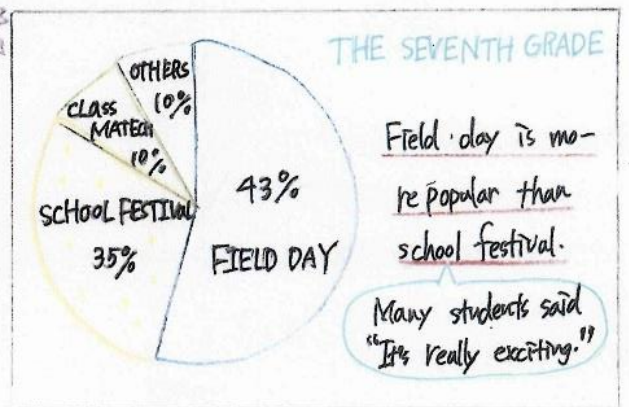 THE SEVENTH GRADE
OTHERS
10%
CLASS
MATECH
10%
SCHOOL FESTIVAL
35%
43%
FIELD DAY
Field day is mo-
re popular than
school festival.
Many students said
"It's really exciting."